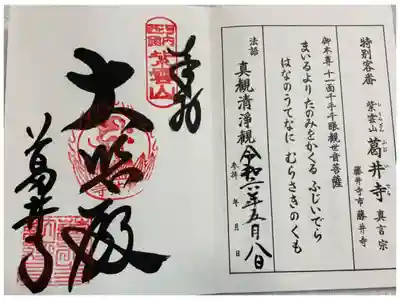 特別客番
紫雲山 葛井寺 真言宗
しうんざん ふじいでら
藤井寺市 藤井寺
御本尊 十一面千手千眼観世音菩薩
まいるよりたのみをかくる ふじいでら
はなのうてなに むらさきのくも
法話 真観清浄観
令和六年五月八日
参拝 年 月 日
奉拝
紫雲山
葛井寺